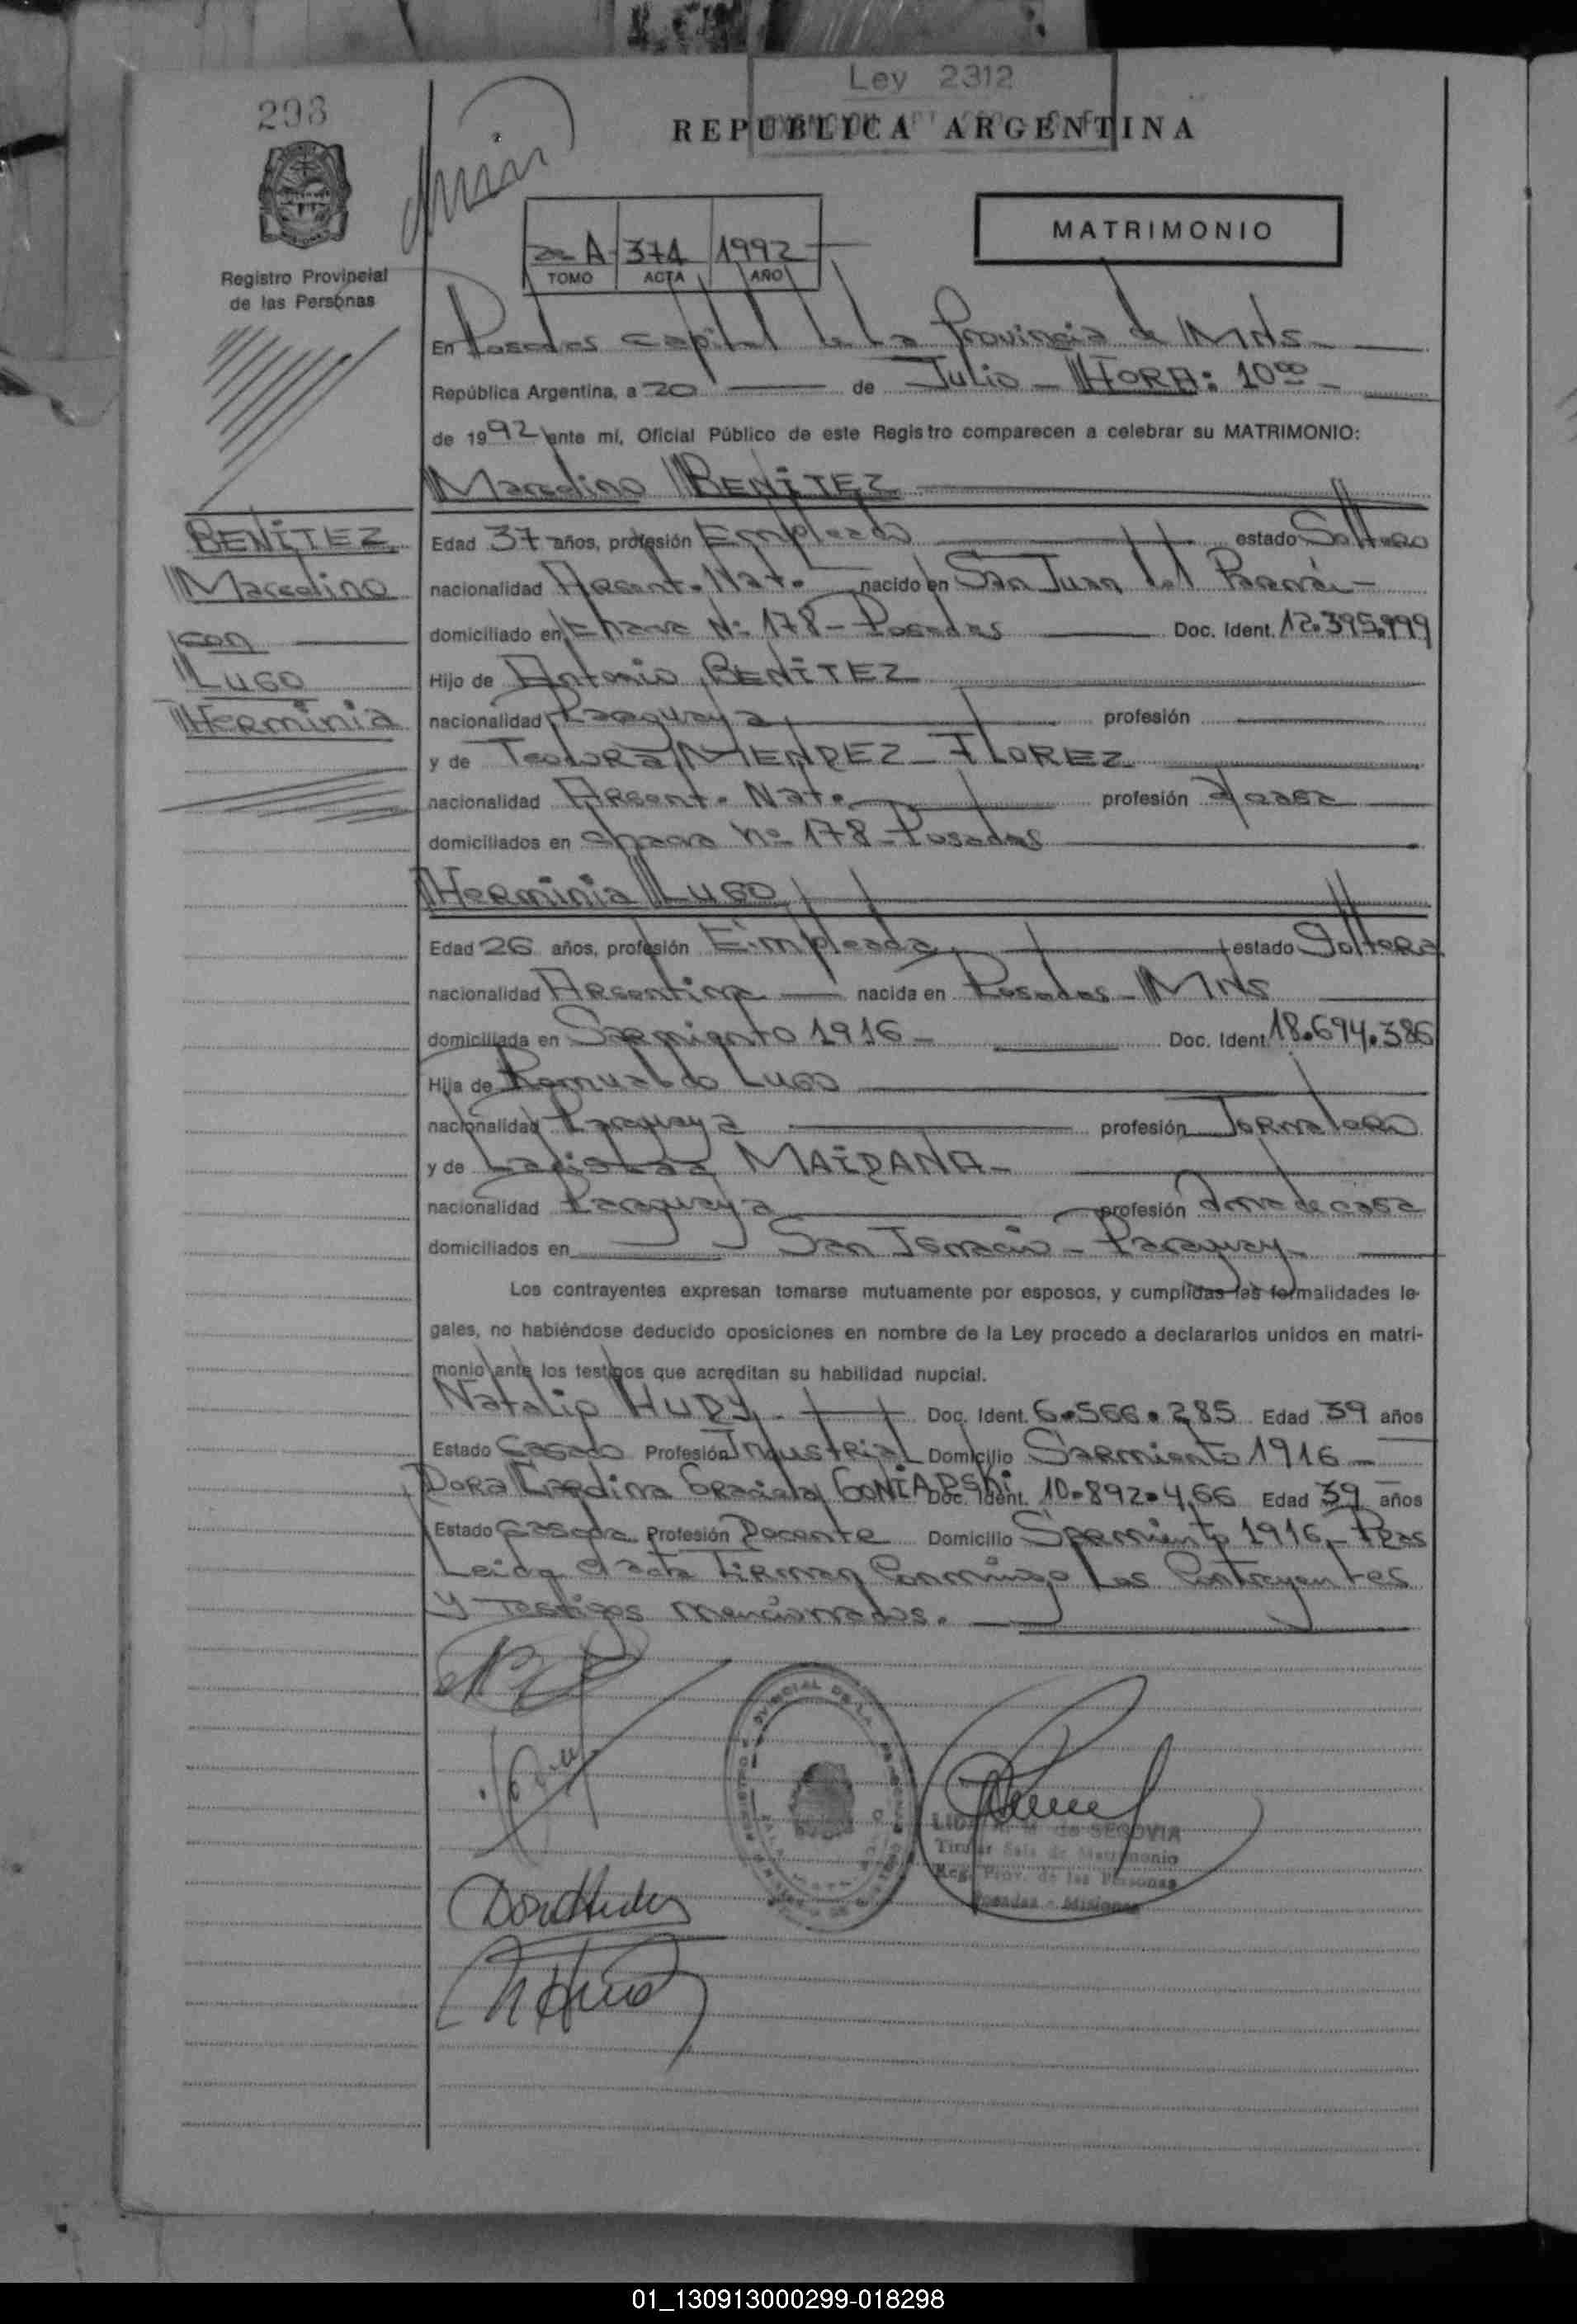 Ley 2312
298
REPUBLICA ARGENTINA
MATRIMONIO
2a A 374 1992
TOMO ACTA AÑO
Registro Provincial
de las Personas
En Posadas Capital de La Provincia de Mns
República Argentina, a 20 de Julio - HORA: 10⁰⁰ -
de 1992 ante mí, Oficial Público de este Registro comparecen a celebrar su MATRIMONIO:
Marcelino BENITEZ
BENITEZ
Marcelino
con
Lugo
Herminia
Edad 37 años, profesión Empleado estado Soltero
nacionalidad Argent. Nat. nacido en San Juan del Paraná -
domiciliado en Chacra Nº 178 - Posadas Doc. Ident. 12.395.999
Hijo de Antonio BENITEZ
nacionalidad Paraguaya profesión
y de Teodora MENDEZ FLOREZ
nacionalidad Argent. Nat. profesión casa
domiciliados en chacra Nº 178 - Posadas
Herminia Lugo
Edad 26 años, profesión Empleada estado Soltera
nacionalidad Argentina nacida en Posadas - Mns
domiciliada en Sarmiento 1916 - Doc. Ident. 18.694.386
Hija de Romualdo Lugo
nacionalidad Paraguaya profesión Jornalero
y de Ladislaa MAIDANA -
nacionalidad Paraguaya profesión Ama de casa
domiciliados en San Ignacio - Paraguay
Los contrayentes expresan tomarse mutuamente por esposos, y cumplidas las formalidades le-
gales, no habiéndose deducido oposiciones en nombre de la Ley procedo a declararlos unidos en matri-
monio ante los testigos que acreditan su habilidad nupcial.
Natalio HUDY Doc. Ident. 6.566.285 Edad 39 años
Estado Casado Profesión Industrial Domicilio Sarmiento 1916
Dora Graciela Doc. Ident. 10.892.466 Edad 39 años
Estado Casada Profesión Docente Domicilio Sarmiento 1916 - Pdas
Leida el acta Firman Conmigo Los Contrayentes
y Testigos mencionados.
de SEGOVIA
Titular Sala de Matrimonio
Reg. Prov. de las Personas
Posadas - Misiones
01_130913000299-018298